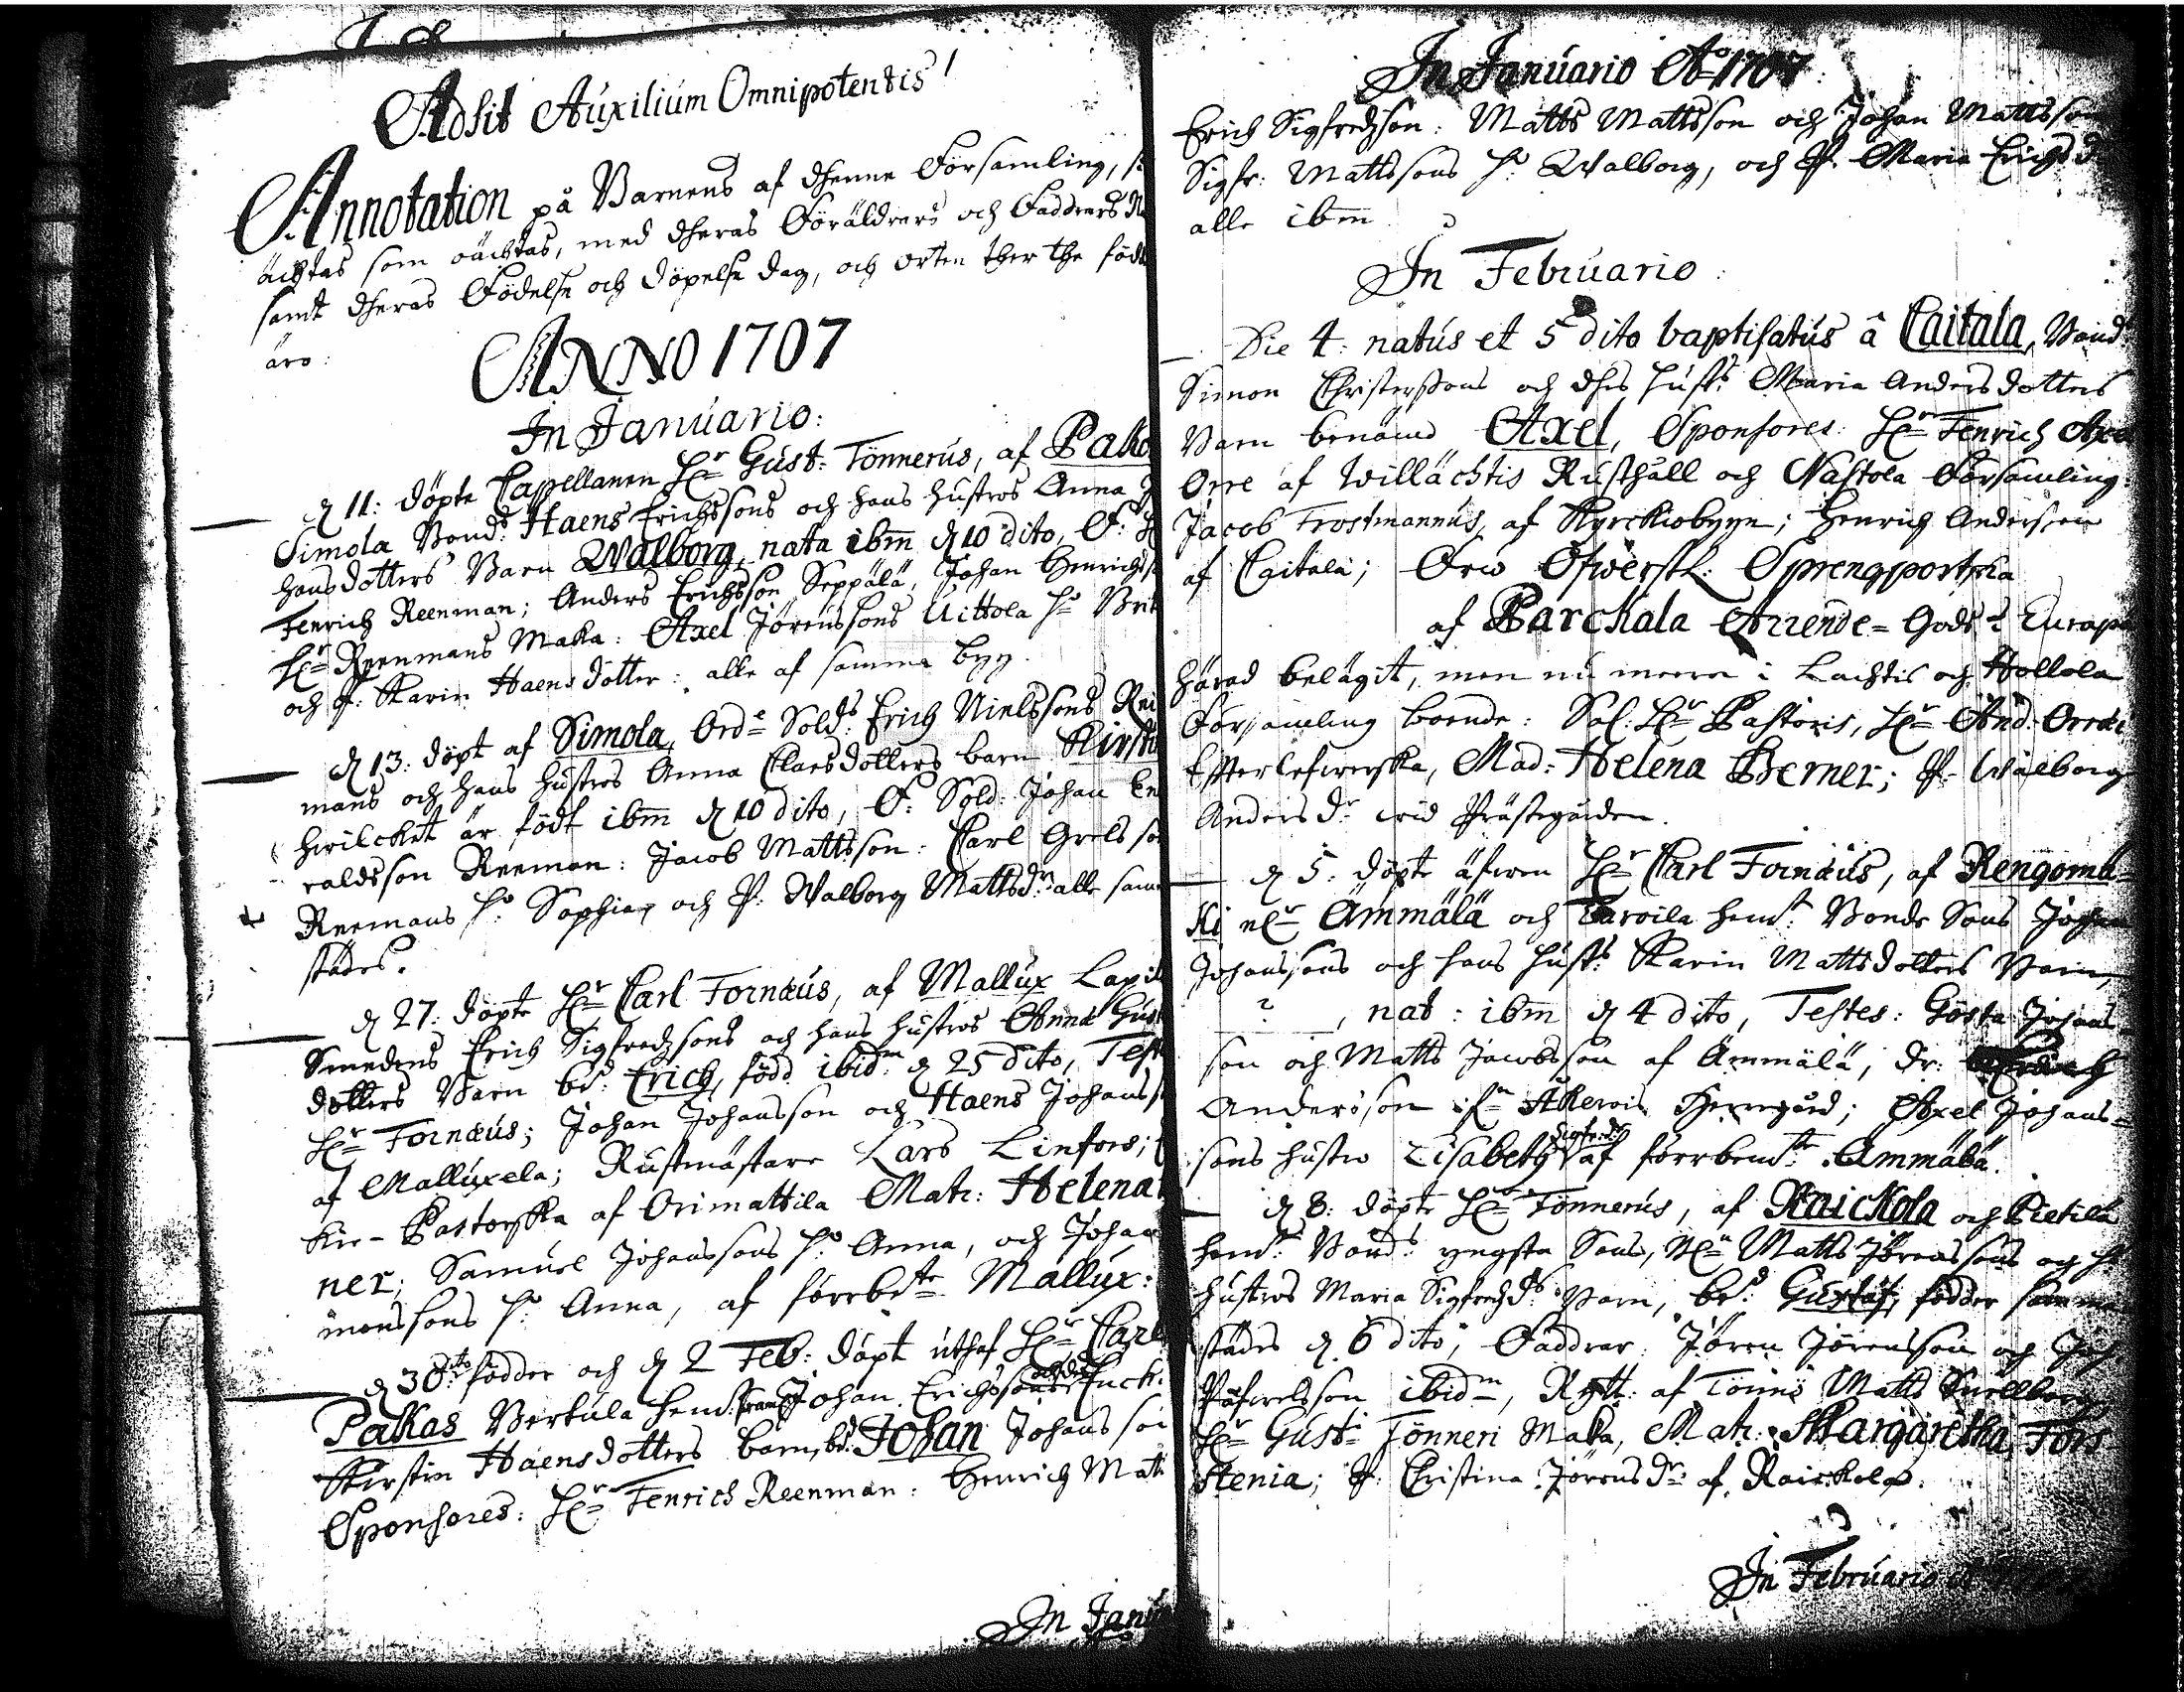 Adsit Auxilium Omnipotentis!
Annotation på Barnens af dhenne Församling,
ächtas som oächtas, med dheras Föräldrars och Faddrars
samt dheras Födelse och döpelse dag, och orten ther the född
äro:
ANNO 1707
In Januario:
d 11: döpte Capellanen Hr Gust: Tönnerus, af Pako
Simola Bond: Haens Erichssons och hans hustros Anna
Hansdotters Barn Walborg, nata ibm d 10 dito, F:
Fenrich Reenman; Anders Erichsson Seppälä, Johan Henrichs
Hr Reenmans Maka: Axel Jörenssons Uittola ho Brit
och P. Karin Haens dotter: alle af samma by.
d 13: döpt af Simola, Ord= Sold: Erich Nielssons Ree
mans och hans hustros Anna Claesdotters barn Kirsti
hwilcket är födt ibm d 10 dito, F: Sold: Johan
raldsson Reeman: Jacob Mattsson: Carl Grelsson
Reemans ho: Sophia, och P: Walborg Mattsdr: alle sam
städes.
d 27: döpte Hr Carl Fornæus, af Mallux Lapil
Smedens Erich Sigfredssons och hans hustros Anna Gust
dotters Barn bd: Erich, född ibidm d 25 dito, Test
Hr Fornæus; Johan Johansson och Haens Johanss
af Malluxela; Rustmästare Lars Linfors;
kie-Pastorska af Orimattila Matr: Helena
ner; Samuel Johanssons ho: Anna, och Johan
monssons ho: Anna, af förrbte Mallux:
d 30: dito födder och d 2 Feb: döpt uthaf Hr Carl
Pakas Vertula Johan Erichssons
Kirstin Haensdotters barn, bd: Johan Johansson
Sponsores: Hr Fenrich Reenman: Henrich Matt
In Janu
In Januario Ao 1707:
Erich Sigfredsson: Matts Mattsson och Johan Mattsson
Sigfr: Mattssons ho Walborg, och P. Maria Erichsd
alle ibm
In Februario:
Die 4: natus et 5 dito baptisatus â Caitala, Bond
Simon Christerssons och dhes hust: Maria Andersdotters
Barn benämd Axel, Sponsores: Hr Fenrich Axe
Orre af Willächtis Rusthåll och Nastola Församling:
Jacob Trostmannus, af Kyrckiobyyn; Henrich Andersson
af Caitala; Frw Öfwerstl: Sprengportska
af Parckala Arrende=Gods i Eurapä
härad belägit, men nu mera i Lachtis och Hollola
Församling boende: Sal: Hr Pastoris, Hr And: Orræi
Effterlefwerska, Mad: Helena Berner; P: Walborg
Anders dr wid Prästegården.
d 5: döpte äfwen Hr Carl Fornæus, af Rengomä=
ki Ämmälä och Taroila hem: Bonde Sons Johan
Johanssons och hans hust: Karin Mattsdotters Barn,
?, nat: ibm d 4 dito, Testes: Gösta Johans=
son och Matts Jacobsson af Ämmälä, Dr:
Andersson Åkerois Herregård; Axel Johans=
sons hustro Lisabeth Sigfredsdr af förrbemte Ämmälä.
d 8: döpte Hr Tönnerus, af Raickola och Pietilä
hem: Bond: yngsta Sons, Matts Jörenssons och hs
hustros Maria Sigfredsdr Barn, bd: Gustaf, födder samma
städes d 6 dito, Faddrar: Jören Jörensson och Joh
Påfwelsson ibidm, Rytt: af Tönnö Matts Snellberg
Hr Gust: Tönneri Maka, Matr: Margaretha Fors
stenia; P: Christina Jörensdr: af Raickola.
In Februario